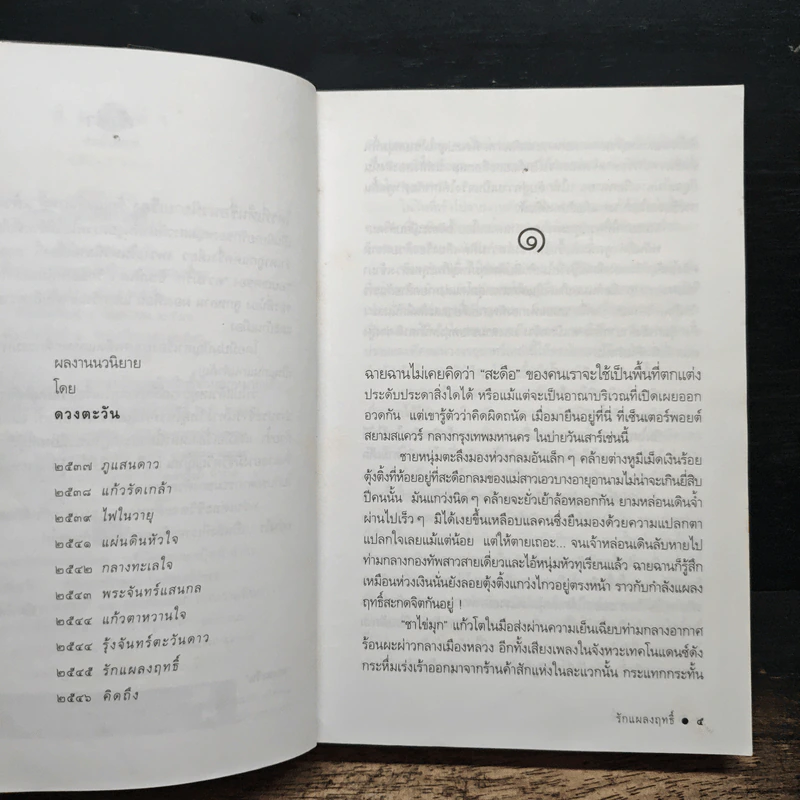 ผลงานนวนิยาย
โดย
ดวงตะวัน
๒๕๓๗ ภูแสนดาว
๒๕๓๘ แก้วรัดเกล้า
๒๕๓๙ ไฟในวายุ
๒๕๔๑ แผ่นดินหัวใจ
๒๕๔๒ กลางทะเลใจ
๒๕๔๓ พระจันทร์แสนกล
๒๕๔๔ แก้วตาหวานใจ
๒๕๔๔ รุ้งจันทร์ตะวันดาว
๒๕๔๕ รักแผลงฤทธิ์
๒๕๔๖ คิดถึง
๑
ฉายฉานไม่เคยคิดว่า “สะดือ” ของคนเราจะใช้เป็นพื้นที่ตกแต่ง
ประดับประดาสิ่งใดได้ หรือแม้แต่จะเป็นอาณาบริเวณที่เปิดเผยออก
อวดกัน แต่เขารู้ตัวว่าคิดผิดถนัด เมื่อมายืนอยู่ที่นี่ ที่เซ็นเตอร์พอยต์
สยามสแควร์ กลางกรุงเทพมหานคร ในบ่ายวันเสาร์เช่นนี้
ชายหนุ่มตะลึงมองห่วงกลมอันเล็กๆ คล้ายต่างหูมีเม็ดเงินร้อย
ตุ้งติ้งที่ห้อยอยู่ที่สะดือกลมของแม่สาวเอวบางอายุอานามไม่น่าจะเกินยี่สิบ
ปีคนนั้น มันแกว่งนิดๆ คล้ายจะยั่วเย้าล้อหลอกกัน ยามหล่อนเดินจ้ำ
ผ่านไปเร็วๆ มิได้เงยขึ้นเหลือบแลคนซึ่งยืนมองด้วยความแปลกตา
แปลกใจเลยแม้แต่น้อย แต่ให้ตายเถอะ... จนเจ้าหล่อนเดินลับหายไป
ท่ามกลางกองทัพสาวสายเดี่ยวและไอ้หนุ่มหัวทุเรียนแล้ว ฉายฉานก็รู้สึก
เหมือนห่วงเงินนั่นยังลอยตุ้งติ้งแกว่งไกวอยู่ตรงหน้า ราวกับกำลังแผลง
ฤทธิ์สะกดจิตกันอยู่ !
“ชาไข่มุก” แก้วโตในมือส่งผ่านความเย็นเฉียบท่ามกลางอากาศ
ร้อนผะผ่าวกลางเมืองหลวง อีกทั้งเสียงเพลงในจังหวะเทคโนแดนซ์ดัง
กระหึ่มเร่งเร้าออกมาจากร้านค้าสักแห่งในละแวกนั้น กระแทกกระทั้น
รักแผลงฤทธิ์ ● ๕